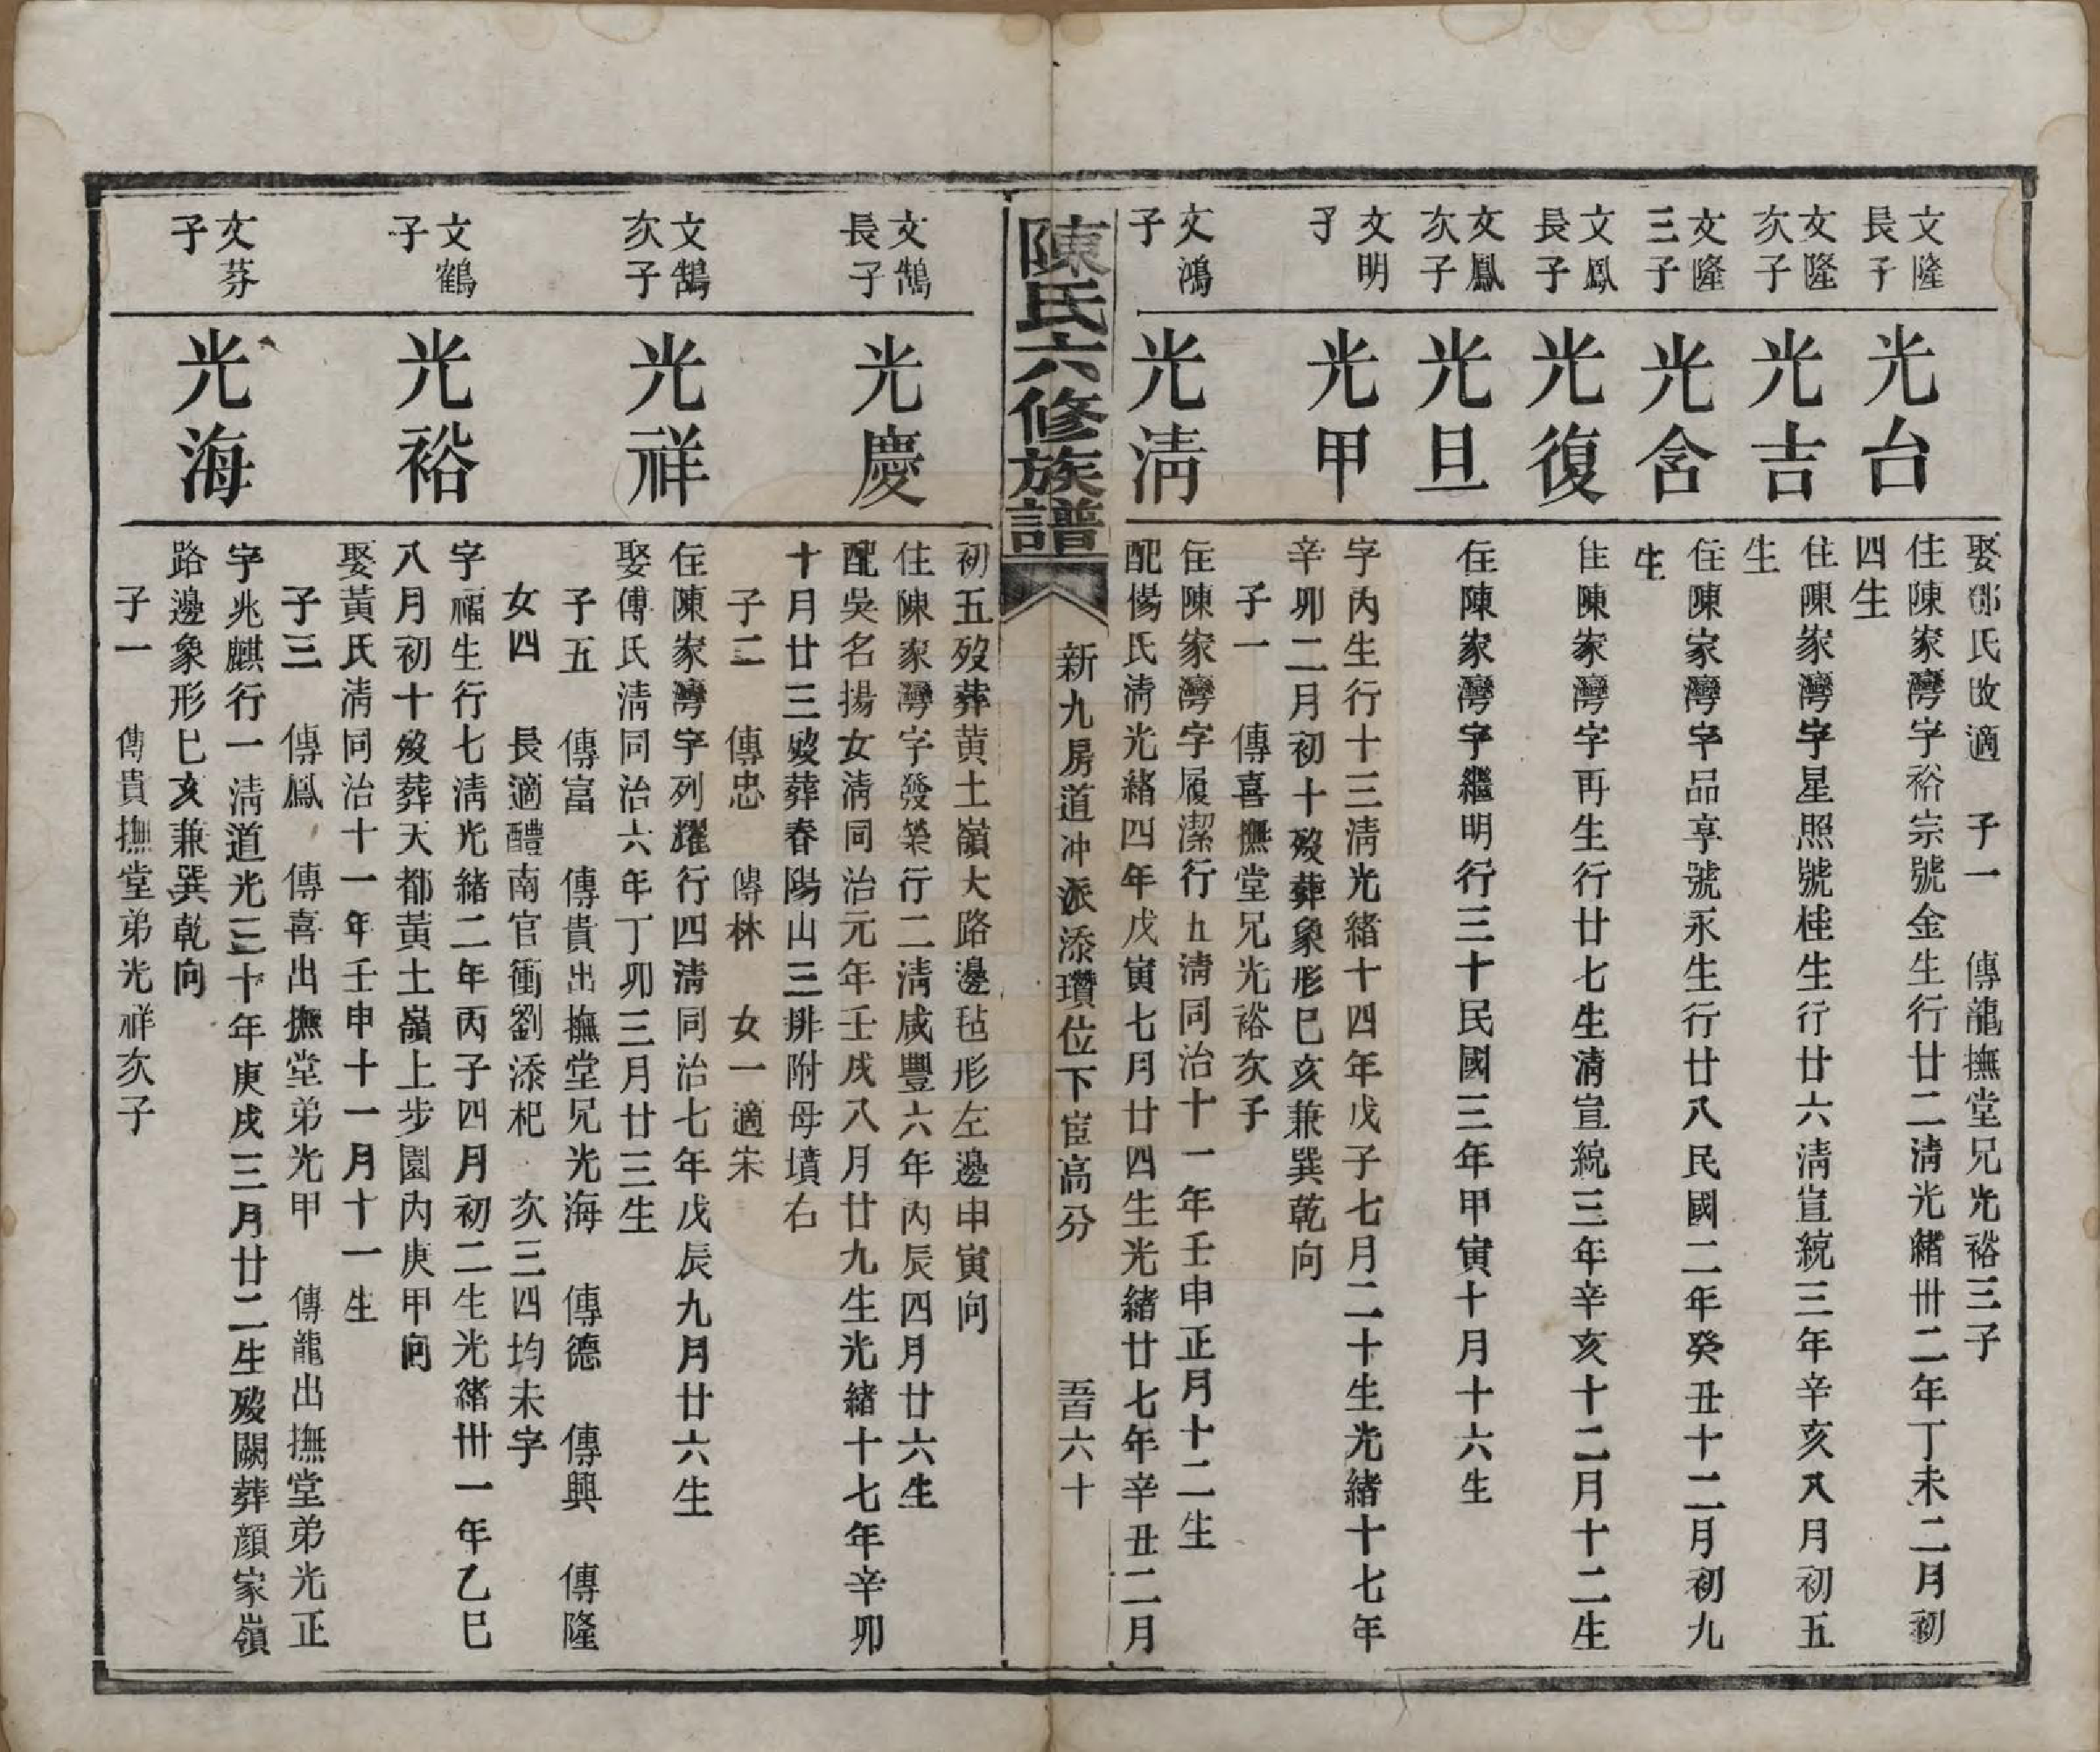 娶鄧氏改適　子一　傳龍撫堂兄光裕三子
文隆長子
光台
住陳家灣字裕宗號金生行廿二清光緒卅二年丁未二月初
四生
文隆次子
光吉
住陳家灣字星照號桂生行廿六清宣統三年辛亥八月初五
生
文隆三子
光含
住陳家灣字品亨號永生行廿八民國二年癸丑十二月初九
生
文鳳長子
光復
住陳家灣字再生行廿七生清宣統三年辛亥十二月十二生
文鳳次子
光旦
住陳家灣字繼明行三十民國三年甲寅十月十六生
文明子
光甲
字丙生行十三清光緒十四年戊子七月二十生光緒十七年
辛卯二月初十歿葬象形巳亥兼巽乾向
子一　傳喜撫堂兄光裕次子
文鴻子
光清
住陳家灣字履潔行五清同治十一年壬申正月十二生
配楊氏清光緒四年戊寅七月廿四生光緒廿七年辛丑二月
陳氏六修族譜
新九房道冲派添瓚位下宦高分
五百六十
初五歿葬黄土嶺大路邊毡形左邊申寅向
文鵠長子
光慶
住陳家灣字發榮行二清咸豐六年丙辰四月廿六生
配吳名揚女清同治元年壬戌八月廿九生光緒十七年辛卯
十月廿三歿葬春陽山三排附母墳右
子二　傳忠　傳林　女一適宋
文鵠次子
光祥
住陳家灣字列耀行四清同治七年戊辰九月廿六生
娶傅氏清同治六年丁卯三月廿三生
子五　傳富　傳貴出撫堂兄光海　傳德　傳興　傳隆
女四　長適醴南官衝劉添杞　次三四均未字
文鶴子
光裕
字福生行七清光緒二年丙子四月初二生光緒卅一年乙巳
八月初十歿葬天都黃土嶺上步園內庚甲向
娶黃氏清同治十一年壬申十一月十一生
子三　傳鳳　傳喜出撫堂弟光甲　傳龍出撫堂弟光正
文芬子
光海
字兆麒行一清道光三十年庚戌三月廿二生歿闕葬顔家嶺
路邊象形巳亥兼巽乾向
子一　傳貴撫堂弟光祥次子